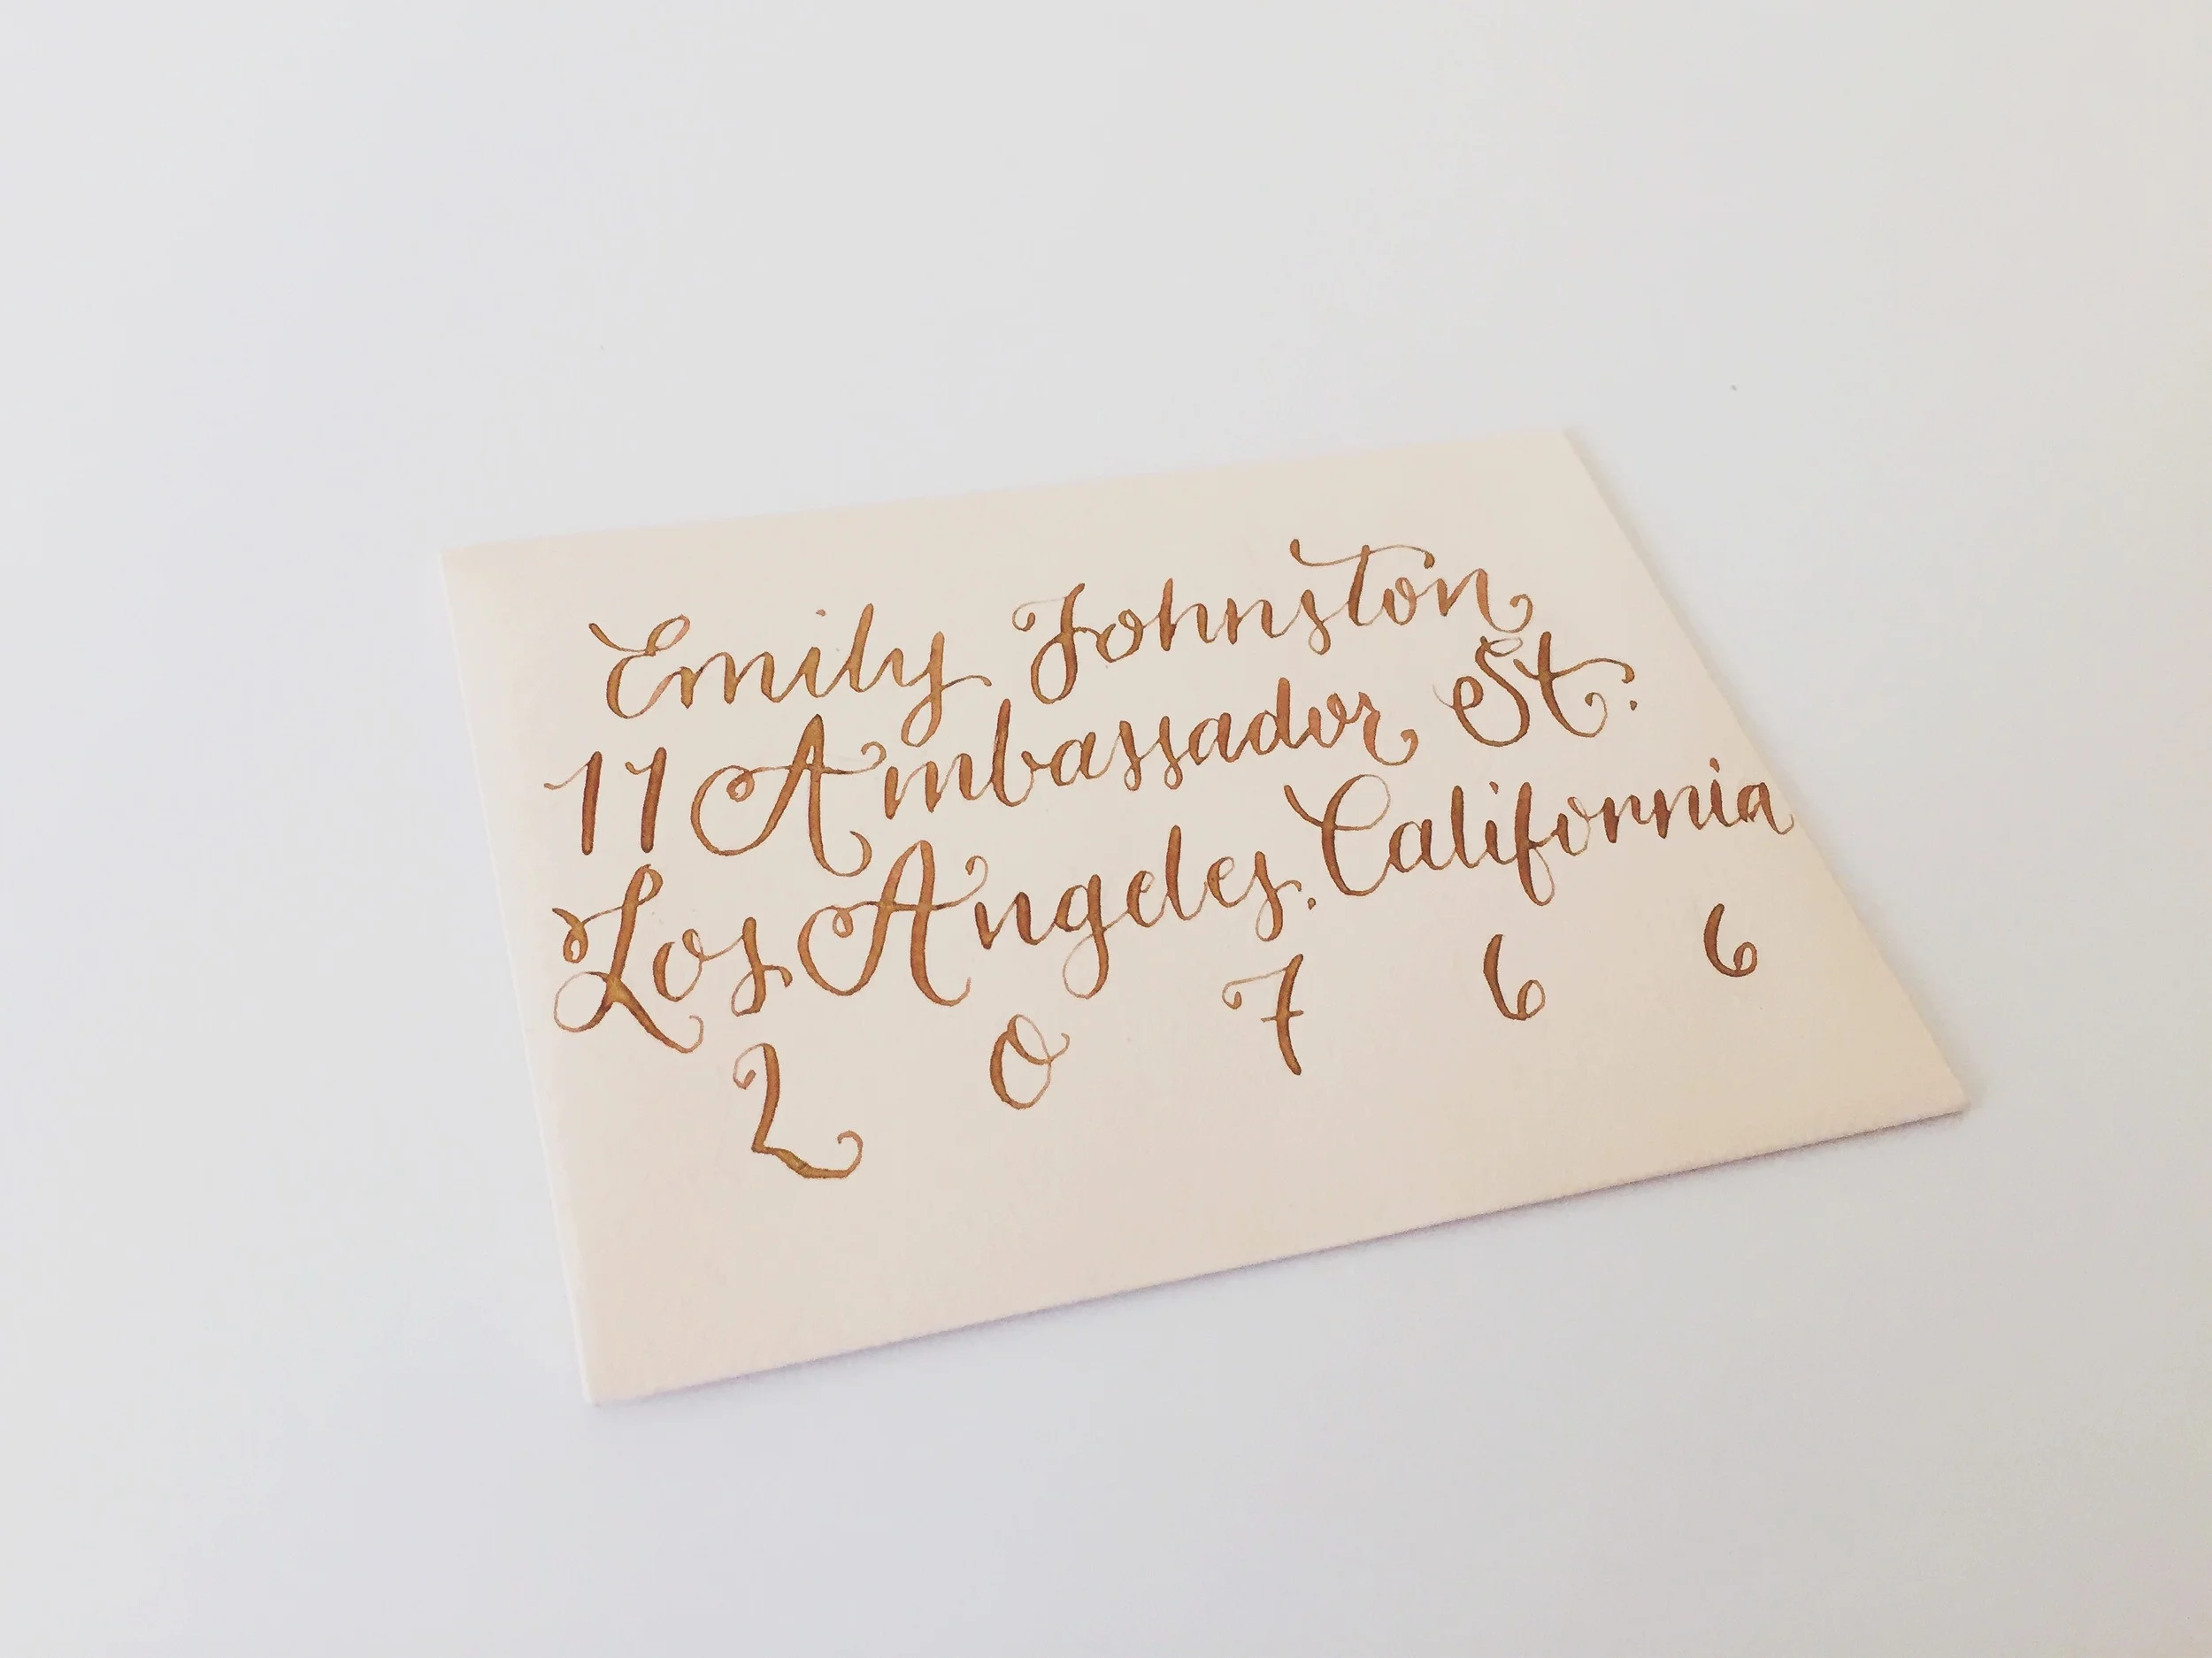 Emily Johnston
11 Ambassador St.
Los Angeles, California
2 0 7 6 6